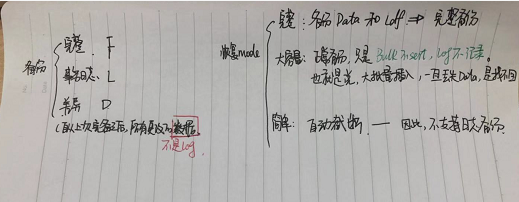 备份
完整. F
事务日志. L
差异 D
(自从上次完备之后,所有更改的数据。
不是Log.
恢复mode
完整: 备份 Data 和 Log ⇒ 完整备份
大容量: 备份, 只是 Bulk insert, Log不记录。
也就是说, 大批量插入, 一旦丢Data, 是找不回
简单: 自动截断. — 因此, 不支持日志备份.